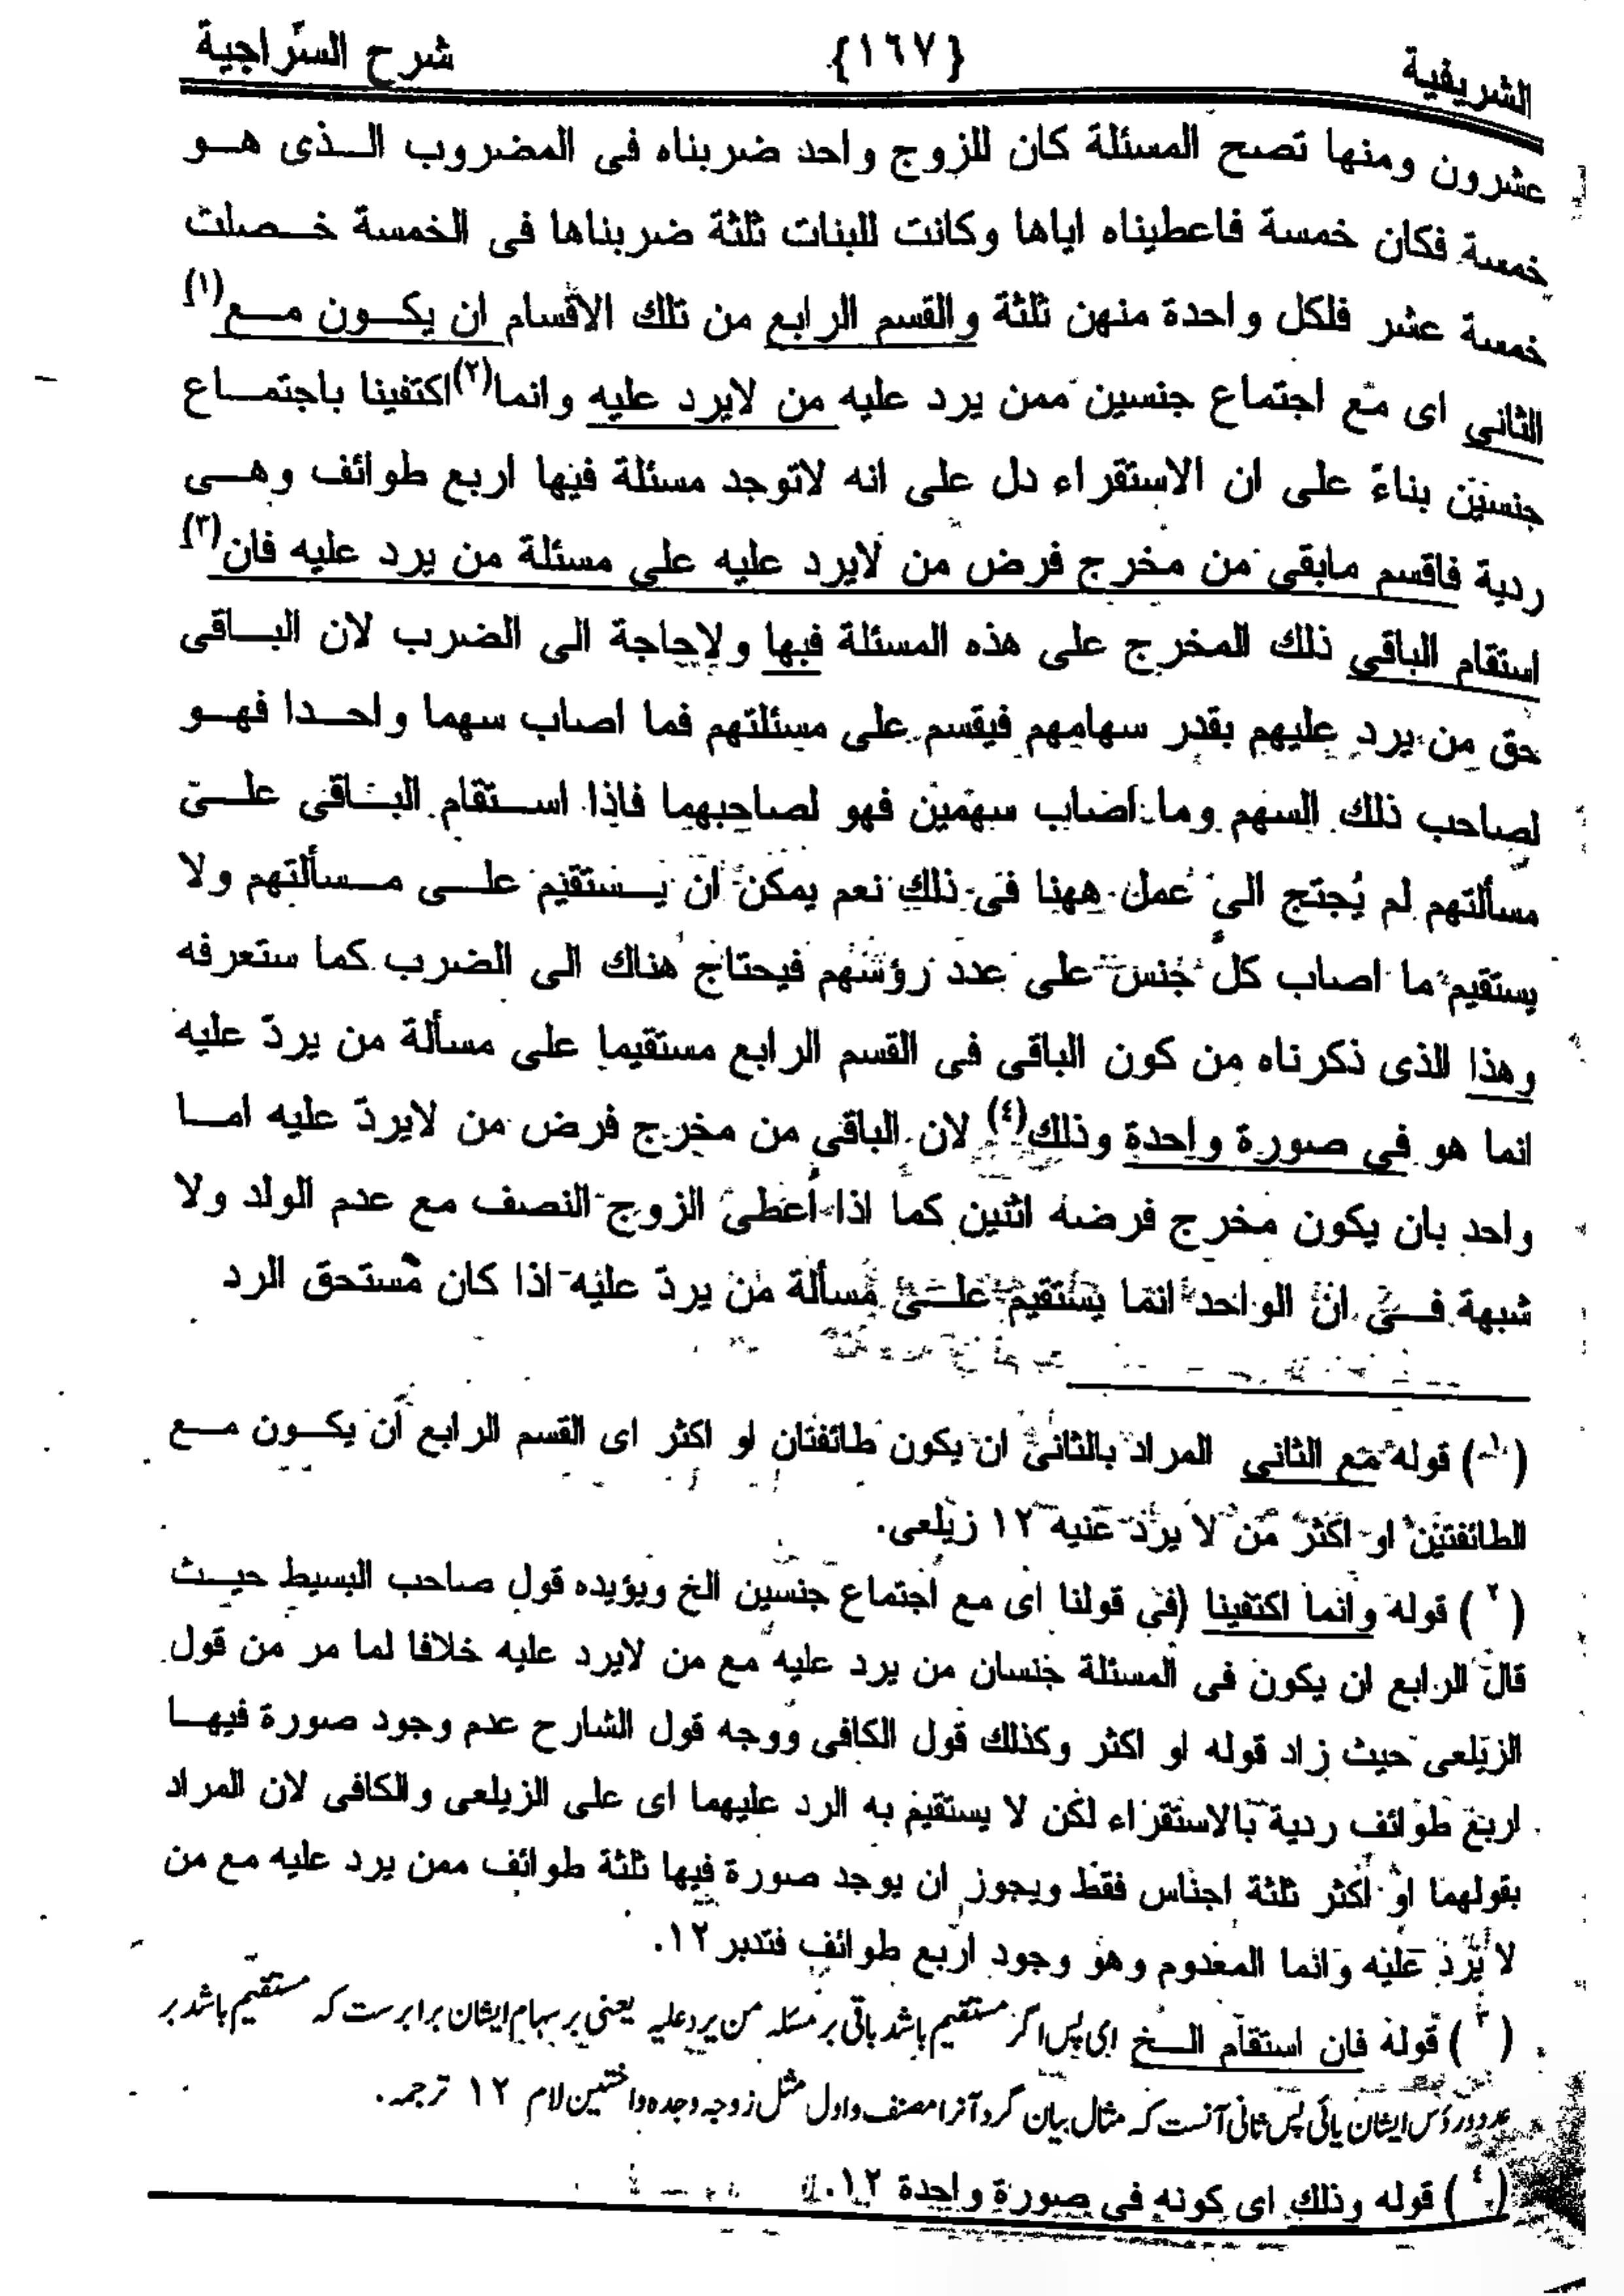 الشريفية {١٦٧} شرح السّراجية
عشرون ومنها تصح المسئلة كان للزوج واحد ضربناه فى المضروب الـذى هـو
خمسة فكان خمسة فاعطيناه اياها وكانت للبنات ثلثة ضربناها فى الخمسة خـصلت
خمسة عشر فلكل واحدة منهن ثلثة والقسم الرابع من تلك الاقسام ان يكـون مـع(١)
الثانى اى مع اجتماع جنسين ممن يرد عليه من لايرد عليه وانما(٢)اكتفينا باجتمـاع
جنسين بناءً على ان الاستقراء دل على انه لاتوجد مسئلة فيها اربع طوائف وهـى
ردية فاقسم مابقى من مخرج فرض من لايرد عليه على مسئلة من يرد عليه فان(٣)
استقام الباقى ذلك المخرج على هذه المسئلة فبها ولاحاجة الى الضرب لان البـاقى
حق من يرد عليهم بقدر سهامهم فيقسم على مسئلتهم فما اصاب سهما واحـدا فهـو
لصاحب ذلك السهم وما اصاب سهمين فهو لصاحبهما فاذا اسـتقام البـاقى علـى
مسألتهم لم يُحتج الى عمل ههنا فى ذلك نعم يمكن ان يـستقيم علـى مـسألتهم ولا
يستقيم ما اصاب كل جنس على عدد رؤسهم فيحتاج هناك الى الضرب كما ستعرفه
وهذا الذى ذكرناه من كون الباقى فى القسم الرابع مستقيما على مسألة من يردّ عليه
انما هو فى صورة واحدة وذلك(٤) لان الباقى من مخرج فرض من لايردّ عليه امـا
واحد بان يكون مخرج فرضه اثنين كما اذا أعطى الزوج النصف مع عدم الولد ولا
شبهة فـى ان الواحد انما يستقيم علـى مسألة من يردّ عليه اذا كان مستحق الرد
(١) قوله مع الثانى المراد بالثانى ان يكون طائفتان او اكثر اى القسم الرابع أن يكـون مـع
الطائفتين او اكثر من لا يرد عليه ١٢ زيلعى.
(٢) قوله وانما اكتفينا (فى قولنا اى مع اجتماع جنسين الخ ويؤيده قول صاحب البسيط حيـث
قال الرابع ان يكون فى المسئلة جنسان من يرد عليه مع من لايرد عليه خلافا لما مر من قول
الزيلعى حيث زاد قوله او اكثر وكذلك قول الكافى ووجه قول الشارح عدم وجود صورة فيهـا
اربع طوائف ردية بالاستقراء لكن لا يستقيم به الرد عليهما اى على الزيلعى والكافى لان المراد
بقولهما او اكثر ثلثة اجناس فقط ويجوز ان يوجد صورة فيها ثلثة طوائف ممن يرد عليه مع من
لا يرد عليه وانما المعدوم وهو وجود اربع طوائف فتدبر ١٢.
(٣) قوله فان استقام الـخ اى پس اگر مستقيم باشد باقى بر مسئله من يرد عليه يعنى بر سهام ايشان برابرست كه مستقيم باشد بر
عدد رؤس ايشان يائى پس ثانى آنست كه مثال بيان گرد آنرا مصنف واول مثل زوجه وجده واختين لام ١٢ ترجمه.
(٤) قوله وذلك اى كونه فى صورة واحدة ١٢.